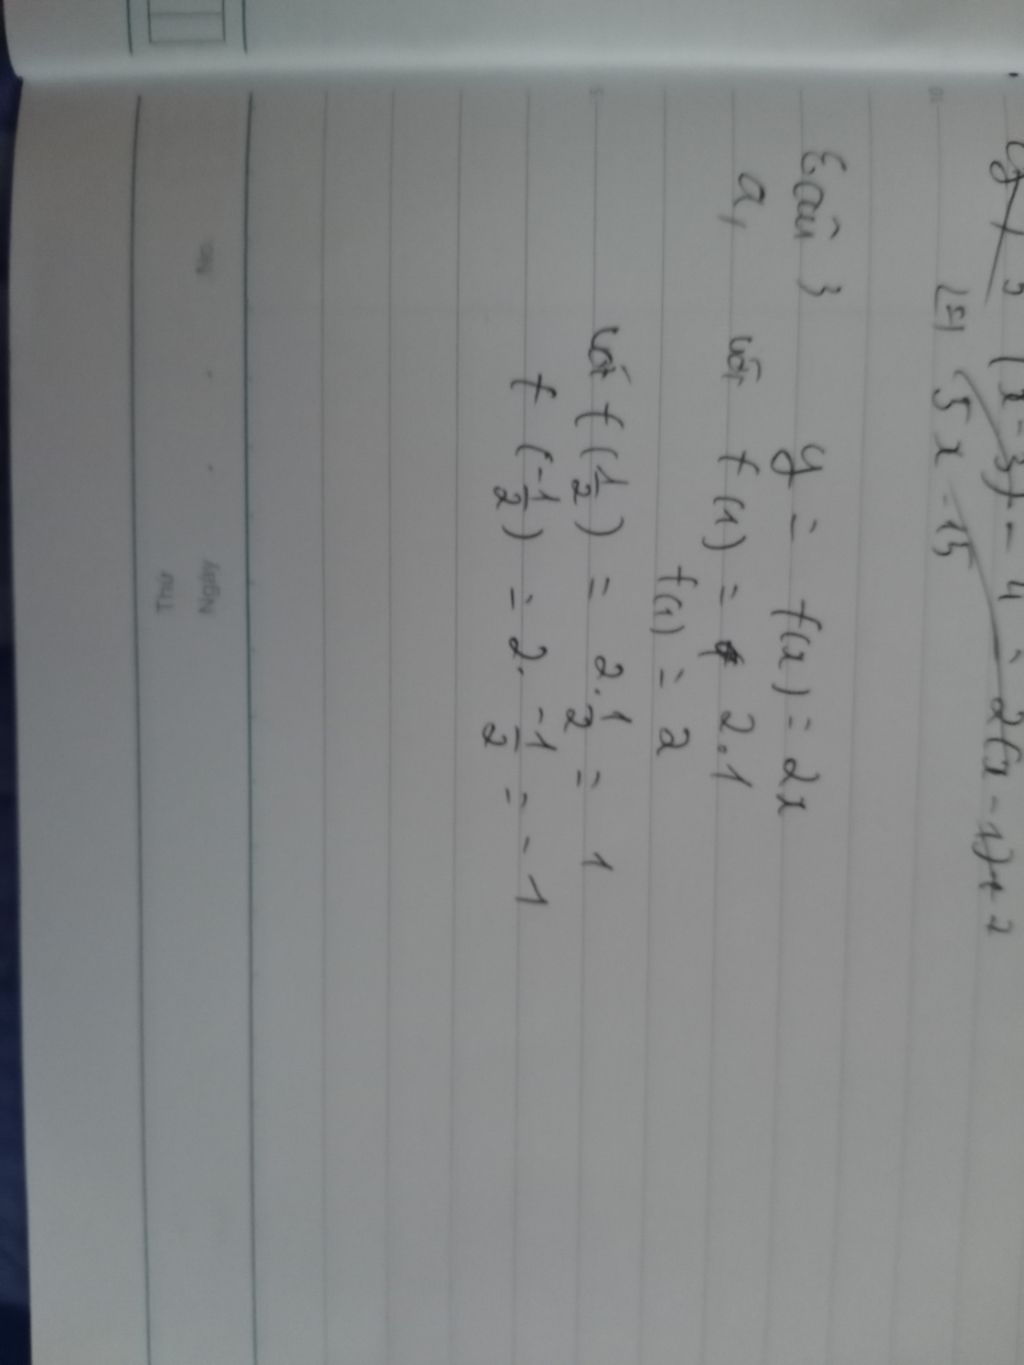 5(x-3)-4 = 2(x-1)+2
5x-15
Câu 3
y = f(x) = 2x
a, với f(1) = 2.1
f(1) = 2
với f(1/2) = 2.1/2 = 1
f(-1/2) = 2.-1/2 = -1
No.
Thứ
Ngày